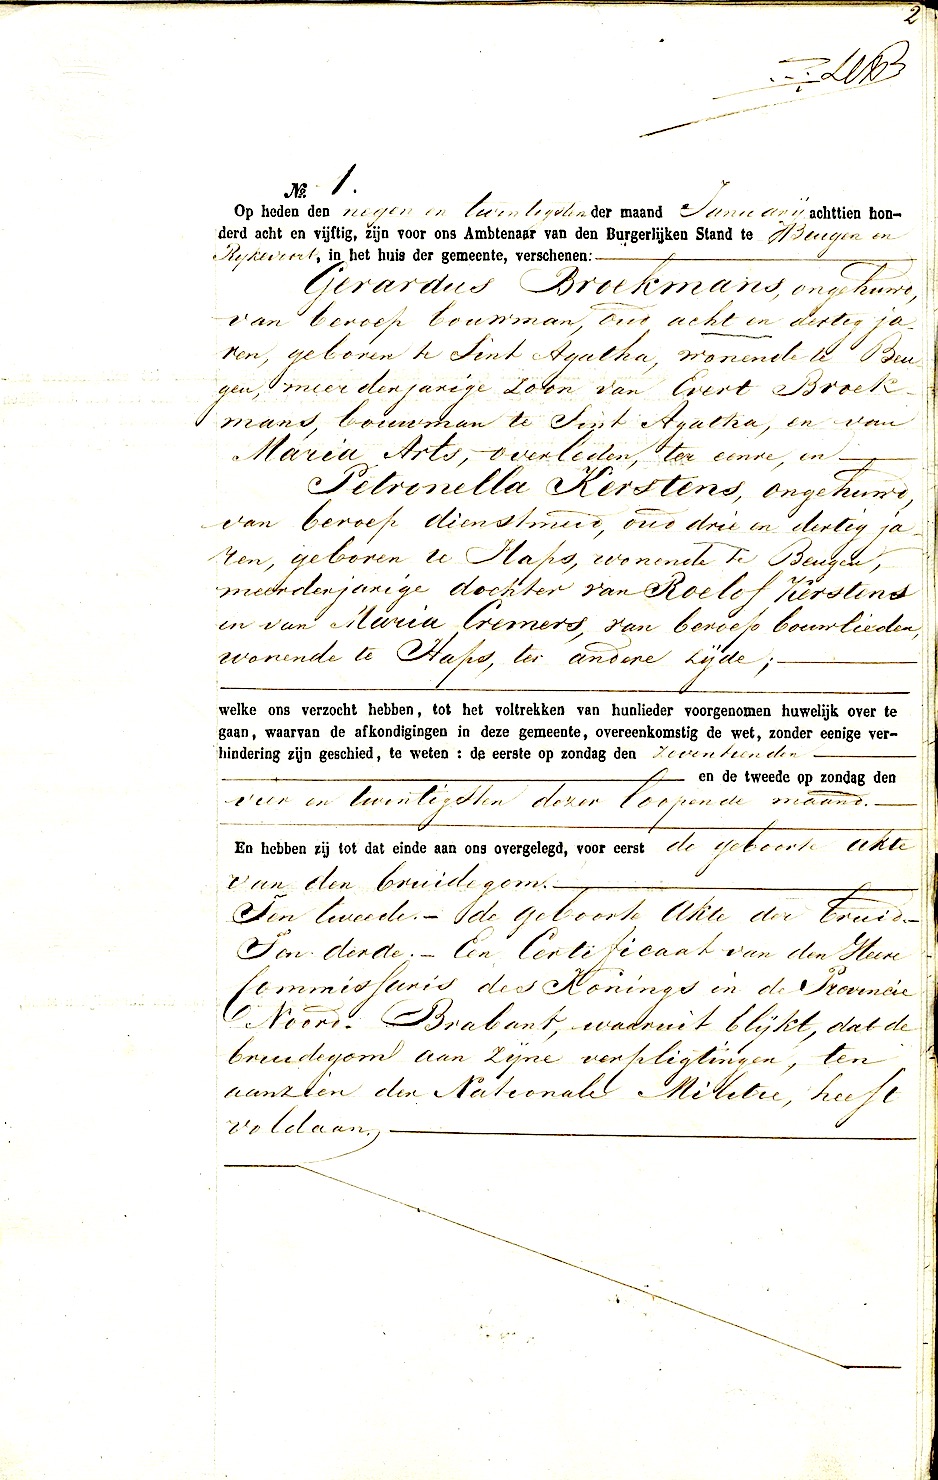 2
No. 1.
Op heden den negen en twintigsten der maand Januarij achttien hon-
derd acht en vijftig, zijn voor ons Ambtenaar van den Burgerlijken Stand te Beugen en
Rykevoort, in het huis der gemeente, verschenen:
Gerardus Broekmans, ongehuwd,
van beroep bouwman, oud acht en dertig ja-
ren, geboren te Sint Agatha, wonende te Beu-
gen, meerderjarige zoon van Evert Broek-
mans, bouwman te Sint Agatha, en van
Maria Arts, overleden, ter eenre, en
Petronella Kerstens, ongehuwd,
van beroep dienstmeid, oud drie en dertig ja-
ren, geboren te Haps, wonende te Beugen,
meerderjarige dochter van Roelof Kerstens
en van Maria Cremers, van beroep bouwlieden,
wonende te Haps, ter andere zijde;
welke ons verzocht hebben, tot het voltrekken van hunlieder voorgenomen huwelijk over te
gaan, waarvan de afkondigingen in deze gemeente, overeenkomstig de wet, zonder eenige ver-
hindering zijn geschied, te weten: de eerste op zondag den zeventienden
en de tweede op zondag den
vier en twintigsten dezer loopende maand.
En hebben zij tot dat einde aan ons overgelegd, voor eerst de geboorte akte
van den bruidegom.
Ten tweede.- de geboorte akte der bruid-
Ten derde.- Een Certificaat van den Heere
Commissaris des Konings in de Provincie
Noord-Brabant, waaruit blijkt, dat de
bruidegom aan zijne verpligtingen, ten
aanzien der Nationale Militie, heeft
voldaan,